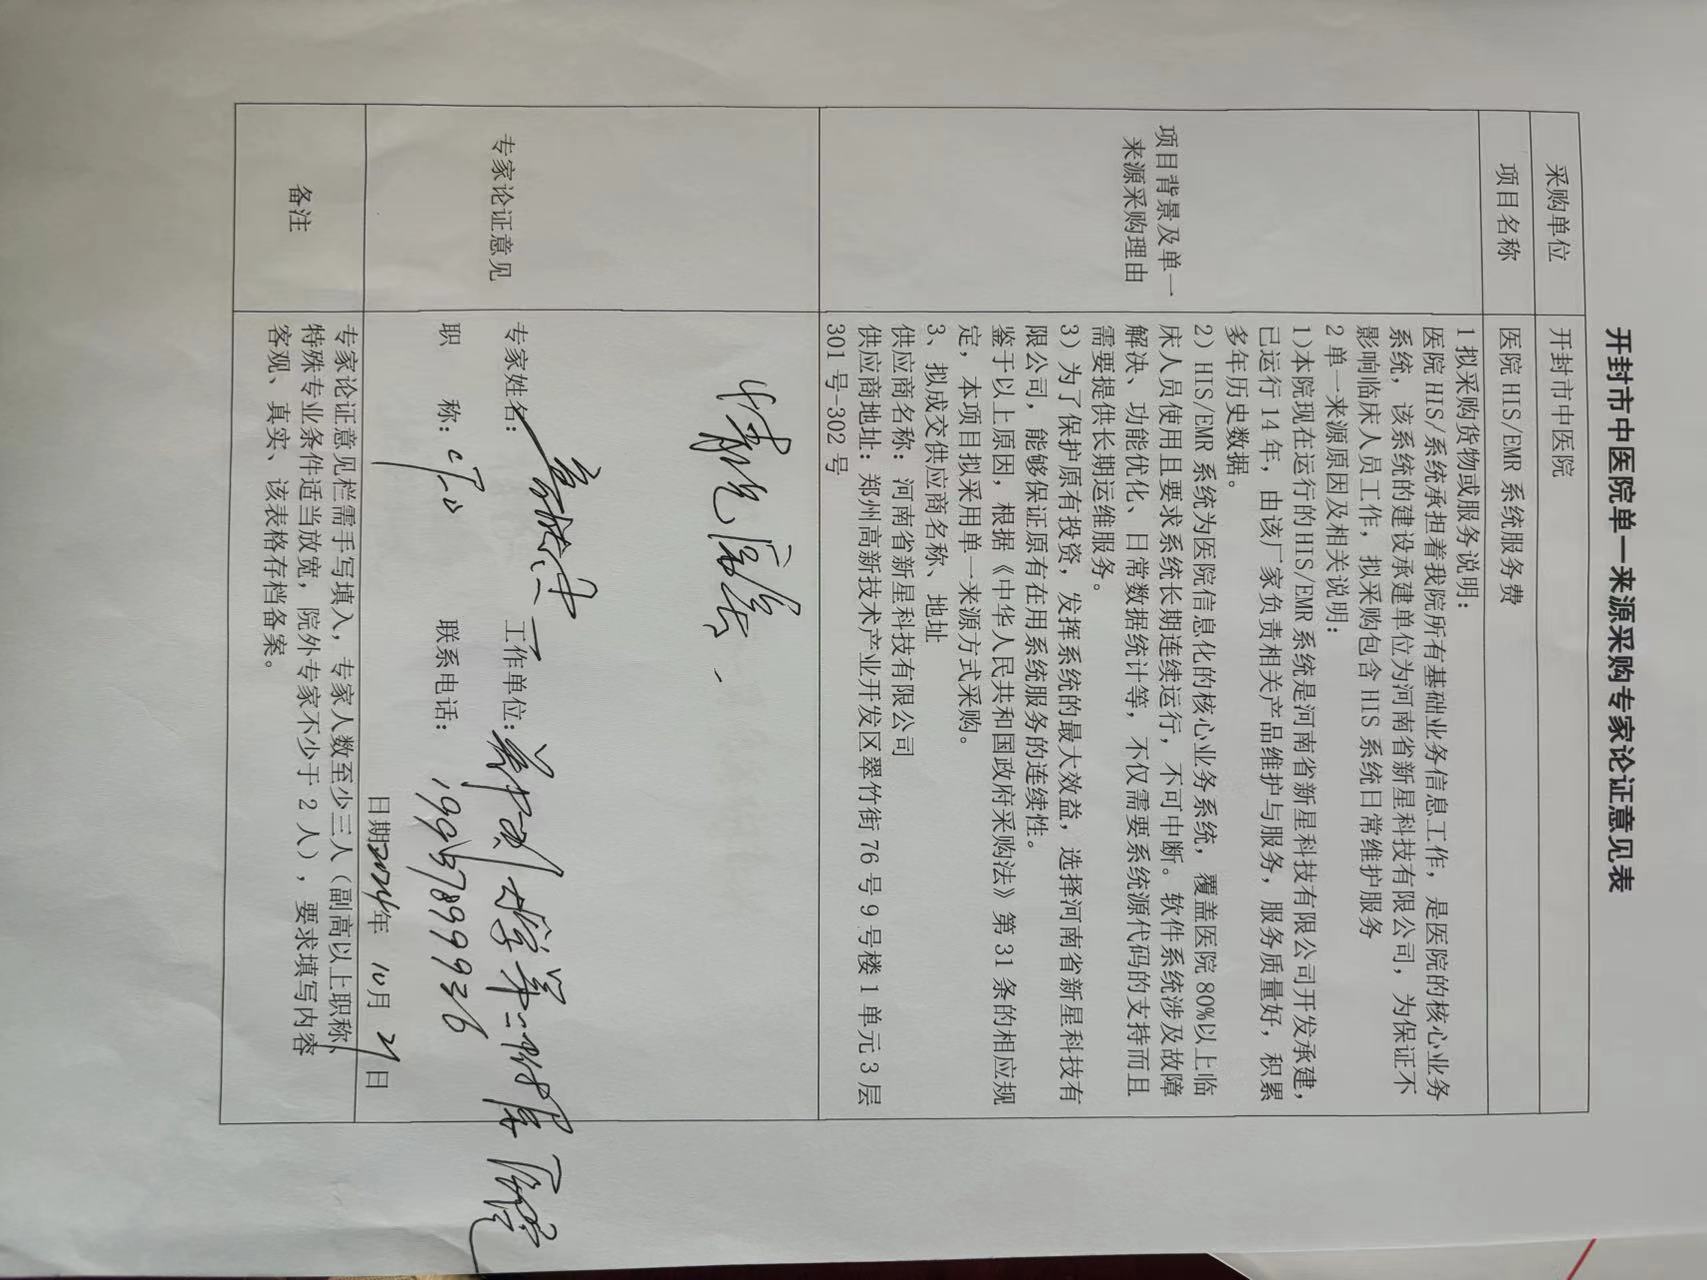 开封市中医院单一来源采购专家论证意见表
采购单位
开封市中医院
项目名称
医院 HIS/EMR 系统服务费
项目背景及单一
来源采购理由
1 拟采购货物或服务说明：
医院 HIS/系统承担着我院所有基础业务信息工作，是医院的核心业务
系统，该系统的建设承建单位为河南省新星科技有限公司，为保证不
影响临床人员工作，拟采购包含 HIS 系统日常维护服务
2 单一来源原因及相关说明：
1)本院现在运行的HIS/EMR 系统是河南省新星科技有限公司开发承建，
已运行 14 年，由该厂家负责相关产品维护与服务，服务质量好，积累
多年历史数据。
2）HIS/EMR 系统为医院信息化的核心业务系统，覆盖医院 80%以上临
床人员使用且要求系统长期连续运行，不可中断。软件系统涉及故障
解决、功能优化、日常数据统计等，不仅需要系统源代码的支持而且
需要提供长期运维服务。
3）为了保护原有投资，发挥系统的最大效益，选择河南省新星科技有
限公司，能够保证原有在用系统服务的连续性。
鉴于以上原因，根据《中华人民共和国政府采购法》第 31 条的相应规
定，本项目拟采用单一来源方式采购。
3、拟成交供应商名称、地址
供应商名称：河南省新星科技有限公司
供应商地址：郑州高新技术产业开发区翠竹街 76 号 9 号楼 1 单元 3 层
301 号-302 号
专家论证意见
专家姓名： 工作单位：郑州大学第二附属医院
职 称： 联系电话：
日期2024年 10月 21日
备注
专家论证意见栏需手写填入，专家人数至少三人（副高以上职称、
特殊专业条件适当放宽，院外专家不少于 2 人），要求填写内容
客观、真实、该表格存档备案。